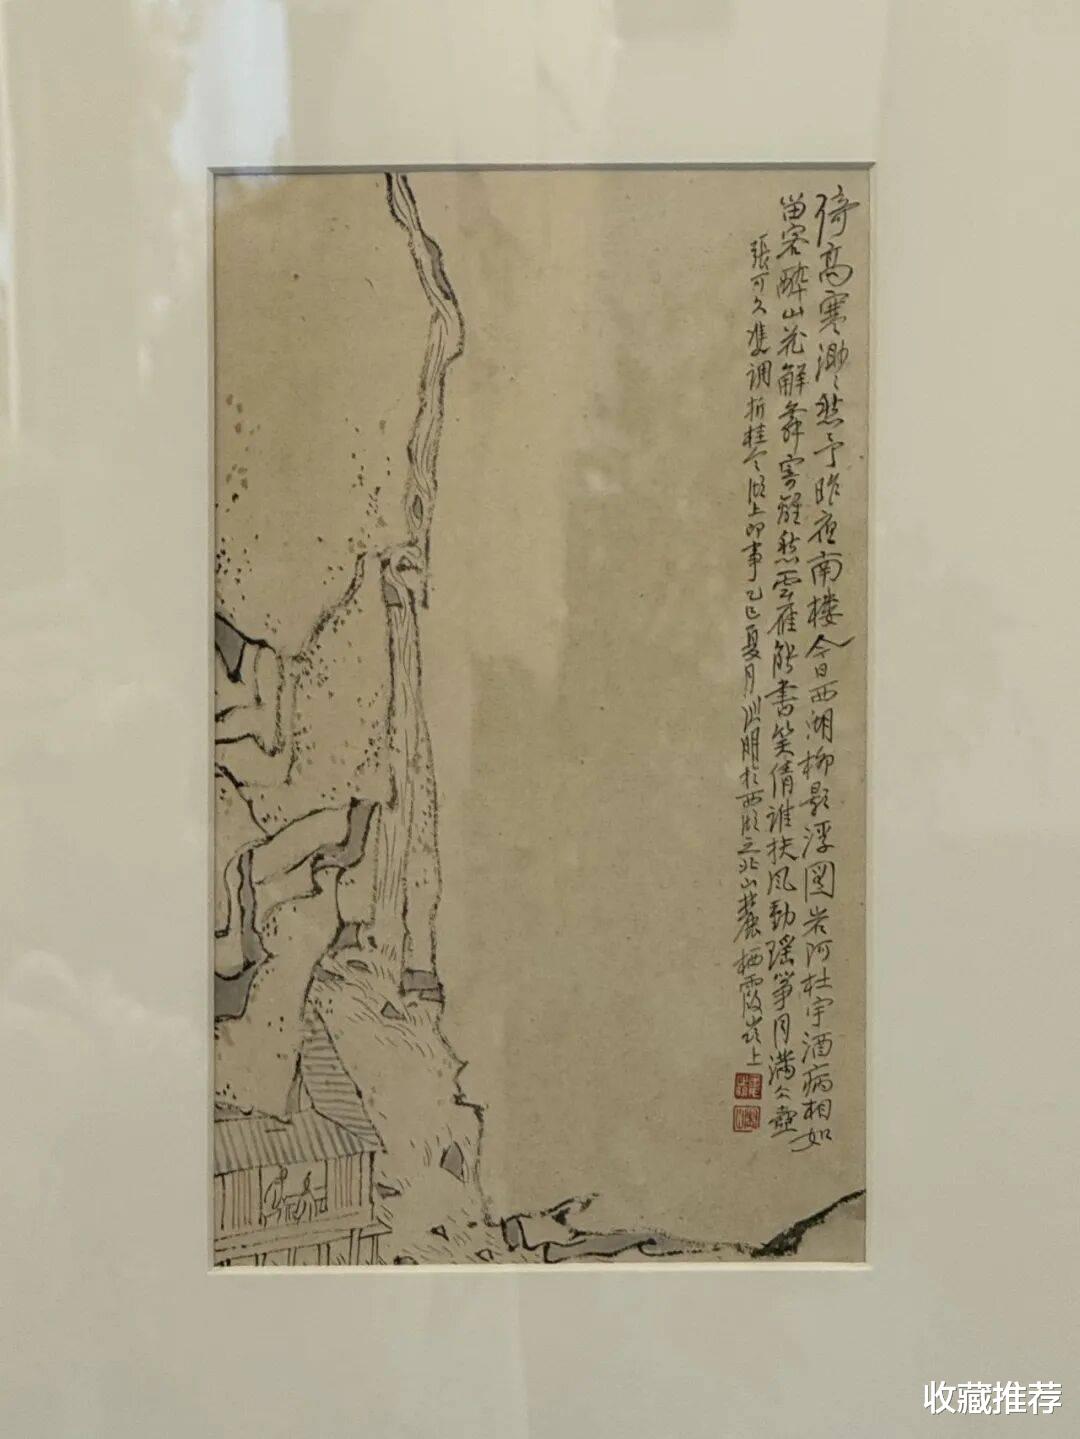 倚高寒渺々愁予昨夜南楼今日西湖柳影浮圖岩阿杜宇酒病相如
留客醉山花解舞寄離愁雲雁能書笑倩谁扶風動瑶筝月满冰壶
張可久雙调折桂令湖上即事乙巳夏月 明於西湖之北山麓栖霞岭上
收藏推荐